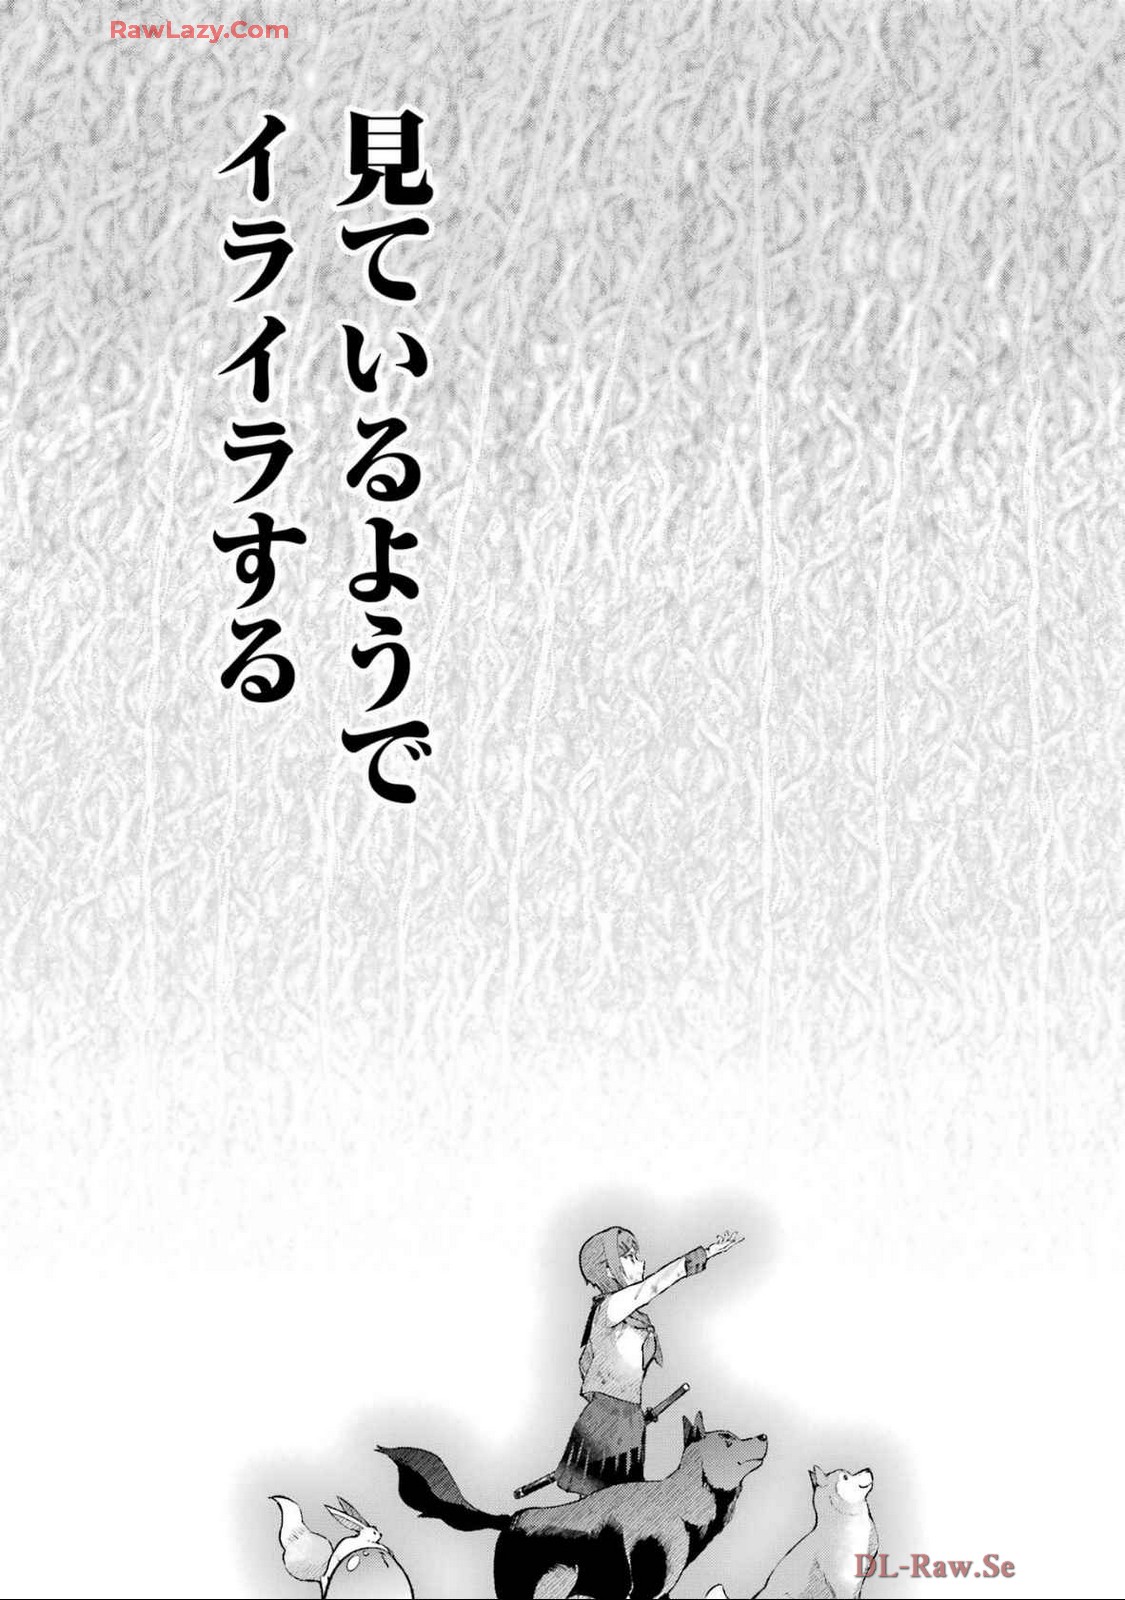 RawLazy.Com
見ているようで
イライラする
DL-Raw.Se